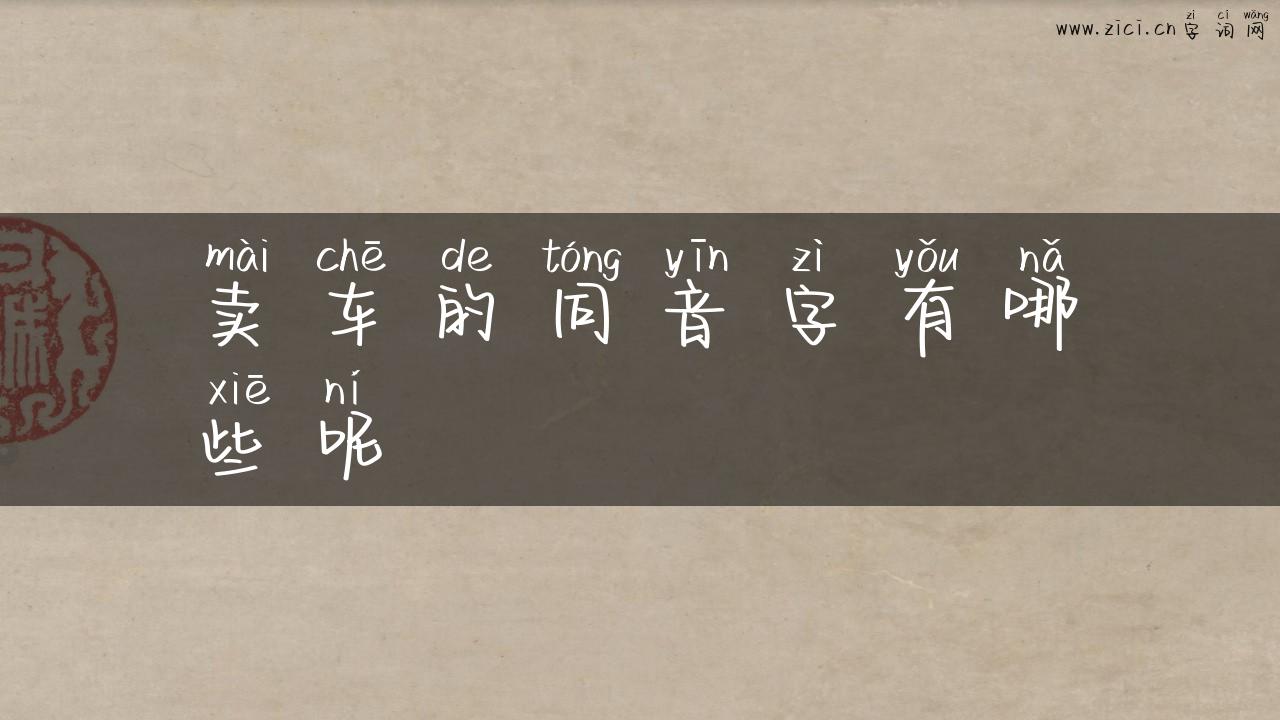 zì cí wǎng
www.zici.cn 字 词 网
mài chē de tóng yīn zì yǒu nǎ
卖 车 的 同 音 字 有 哪
xiē ní
些 呢